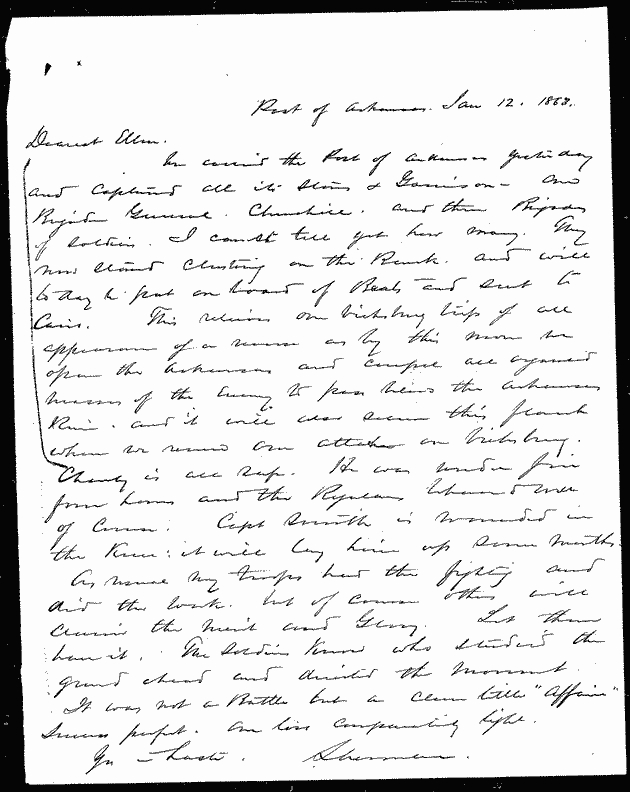 Post of Arkansas. Jan 12. 1863.
Dearest Ellen.
We carried the Post of Arkansas yesterday
and captured all its stores & Garrison - one
Brigadier General. Churchill. and three Brigades
of soldiers. I cannot tell yet how many. They
now stand clustering on the Bank. and will
today be put on board of Boats and sent to
Cairo. This relieves our Vicksburg trip of all
appearances of a reverse as by this move we
open the Arkansas and compel all organised
masses of the Enemy to pass below the Arkansas
River. and it will also secure this flank
when we renew our attack on Vicksburg.
Charley is all safe. He was under fire
four hours and the Regulars behaved well
of course. Capt Smith is wounded in
the Knee: it will lay him up some months.
As usual my troops had the fighting and
did the work. but of course others will
claim the merit and Glory. Let them
have it. The Soldiers Know who studied the
ground ahead and directed the movement.
It was not a Battle but a clean little "affair"
success perfect. our loss comparatively light.
Yrs in haste. Sherman.